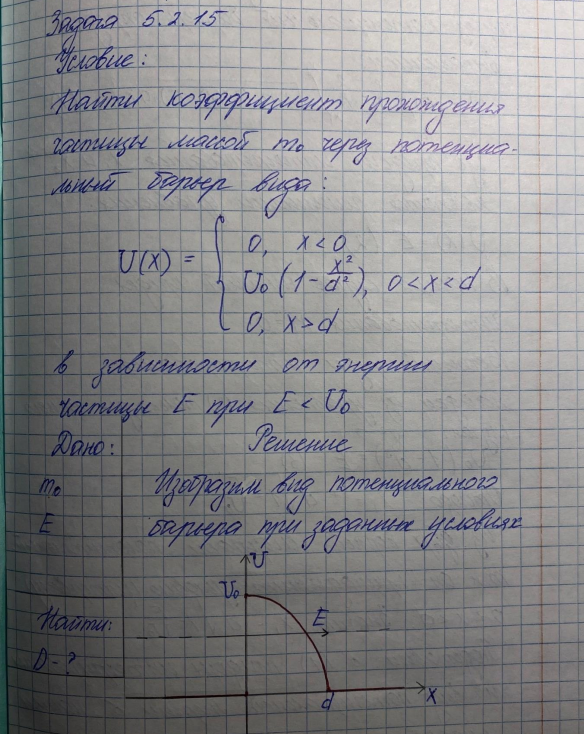 Задача 5.2.15
Условие:
Найти коэффициент прохождения
частицы массой m₀ через потенциа-
льный барьер вида:
U(x) = { 0, x < 0
U₀ (1 - x²/d²), 0 < x < d
0, x > d
в зависимости от энергии
частицы E при E < U₀
Дано: Решение
m₀ Изобразим вид потенциального
E барьера при заданных условиях
U
U₀
Найти: E
D - ?
d x